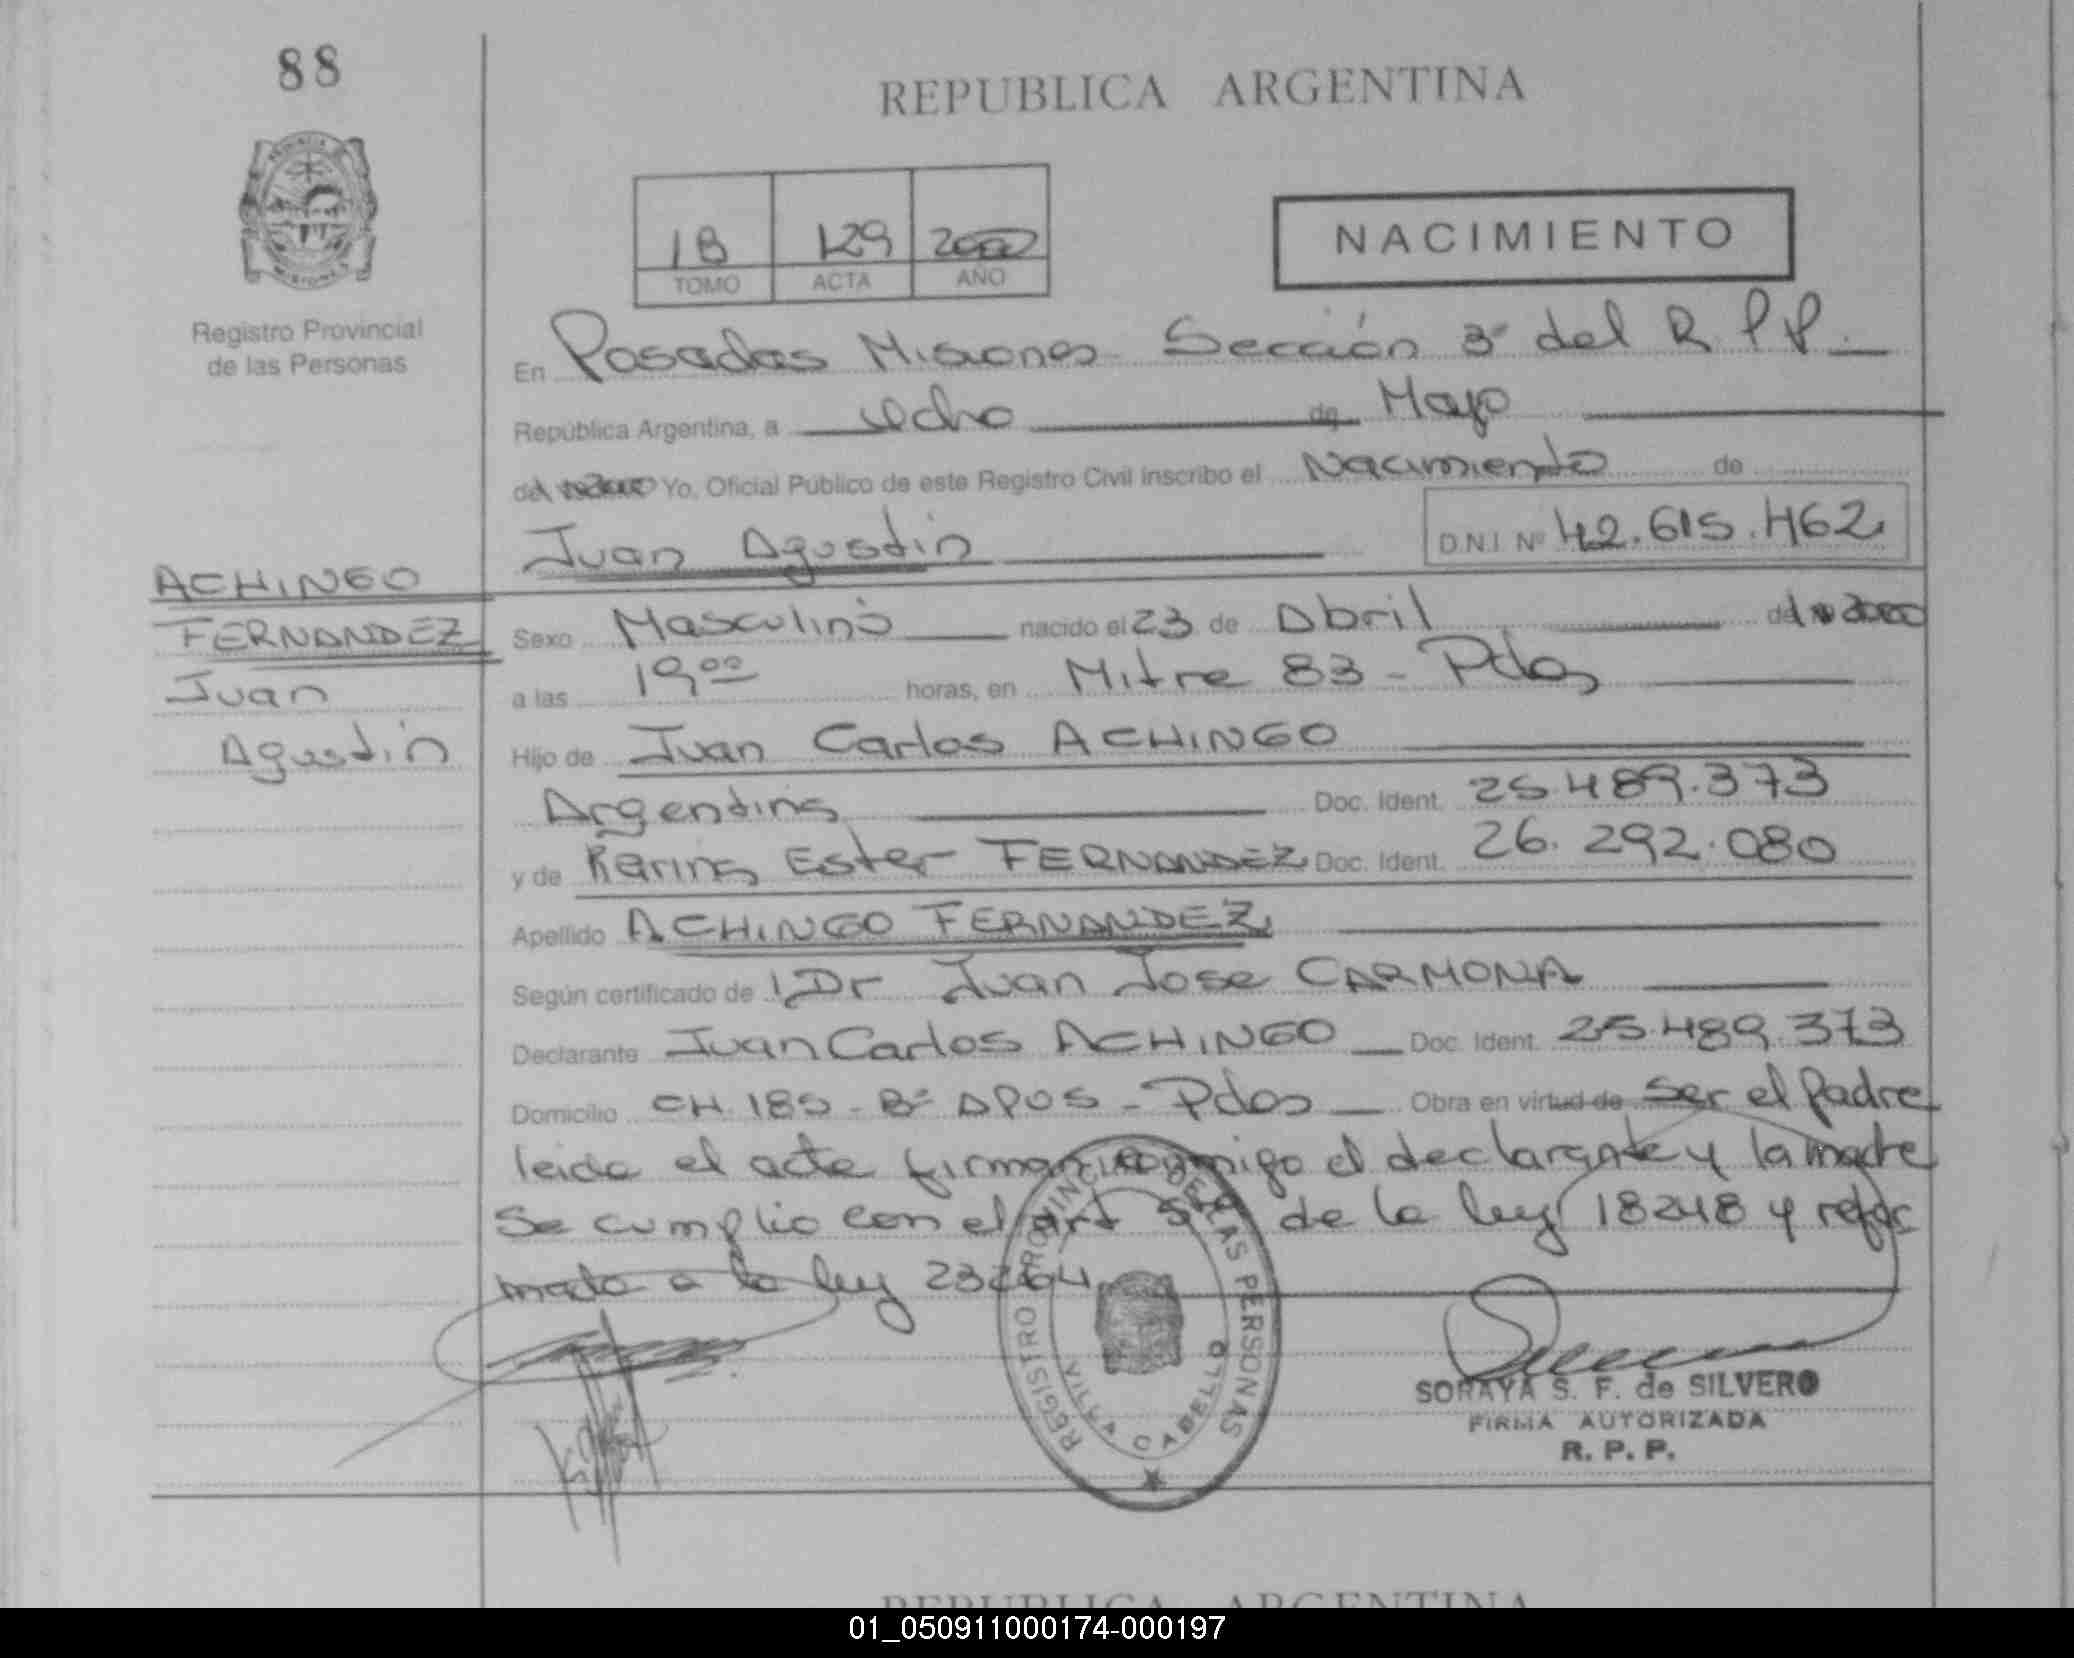 88
REPUBLICA ARGENTINA
1B 129 2000
TOMO ACTA AÑO
NACIMIENTO
Registro Provincial
de las Personas
En Posadas Misiones Sección 3ª del R.P.P.
República Argentina, a ocho de Mayo
del 2000 Yo, Oficial Público de este Registro Civil inscribo el Nacimiento de
Juan Agustin D.N.I. Nº 42.615.462
ACHINGO
FERNANDEZ
Juan
Agustin
Sexo Masculino nacido el 23 de Abril del 2000
a las 19 00 horas, en Mitre 83 - Pdas
Hijo de Juan Carlos ACHINGO
Argentina Doc. Ident. 25.489.373
y de Karina Ester FERNANDEZ Doc. Ident. 26.292.080
Apellido ACHINGO FERNANDEZ
Según certificado de Dr Juan Jose CARMONA
Declarante Juan Carlos ACHINGO Doc. Ident. 25.489.373
Domicilio CH. 185 - Bº APOS - Pdas Obra en virtud de ser el Padre
leida el acta firman conmigo el declarante y la madre
Se cumplio con el art 5 de la ley 18248 y refor
mada a la ley 23264
REGISTRO PROVINCIAL DE LAS PERSONAS
VILLA CABELLO
SORAYA S. F. de SILVERO
FIRMA AUTORIZADA
R. P. P.
REPUBLICA ARGENTINA
01_050911000174-000197